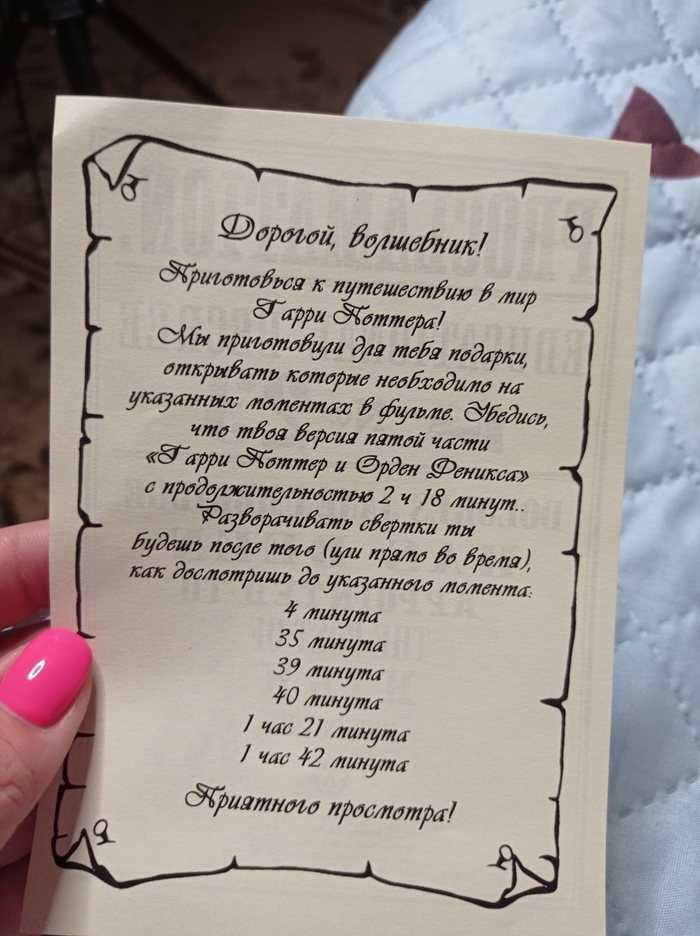 Дорогой, волшебник!
Приготовься к путешествию в мир
Гарри Поттера!
Мы приготовили для тебя подарки,
открывать которые необходимо на
указанных моментах в фильме. Убедись,
что твоя версия пятой части
«Гарри Поттер и Орден Феникса»
с продолжительностью 2 ч 18 минут..
Разворачивать свертки ты
будешь после того (или прямо во время),
как досмотришь до указанного момента:
4 минута
35 минута
39 минута
40 минута
1 час 21 минута
1 час 42 минута
Приятного просмотра!